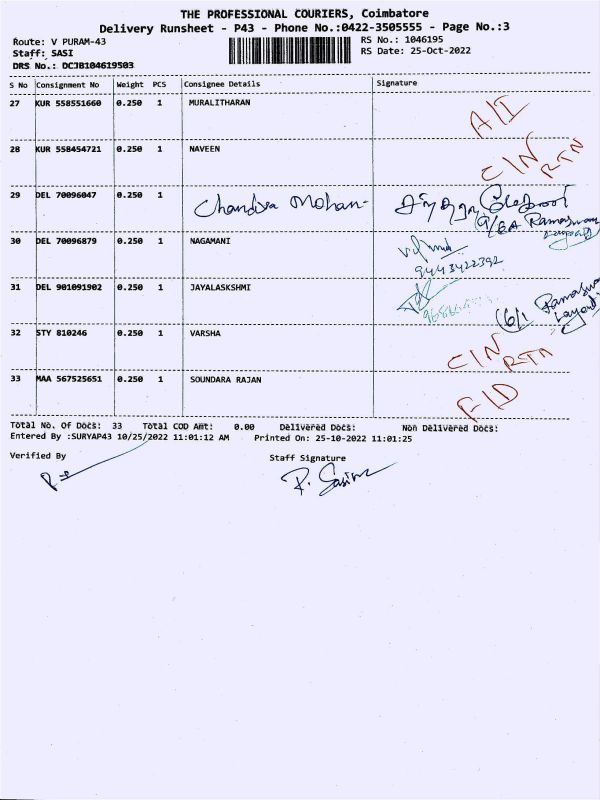 THE PROFESSIONAL COURIERS, Coimbatore
Delivery Runsheet - P43 - Phone No.:0422-3505555 - Page No.:3
Route: V PURAM-43 RS No.: 1046195
Staff: SASI RS Date: 25-Oct-2022
DRS No.: DCJB104619503
S No Consignment No Weight PCS Consignee Details Signature
27 KUR 558551660 0.250 1 MURALITHARAN A/I
28 KUR 558454721 0.250 1 NAVEEN C/N RTN
29 DEL 70096047 0.250 1 Chandra Mohan-
Ramaswamy
Layout
30 DEL 70096879 0.250 1 NAGAMANI
9443422392
31 DEL 901091902 0.250 1 JAYALASKSHMI
Layout
32 STY 810246 0.250 1 VARSHA C/N RTN
33 MAA 567525651 0.250 1 SOUNDARA RAJAN
Total No. Of Docs: 33 Total COD Amt: 0.00 Delivered Docs: Non Delivered Docs:
Entered By :SURYAP43 10/25/2022 11:01:12 AM Printed On: 25-10-2022 11:01:25
Verified By Staff Signature